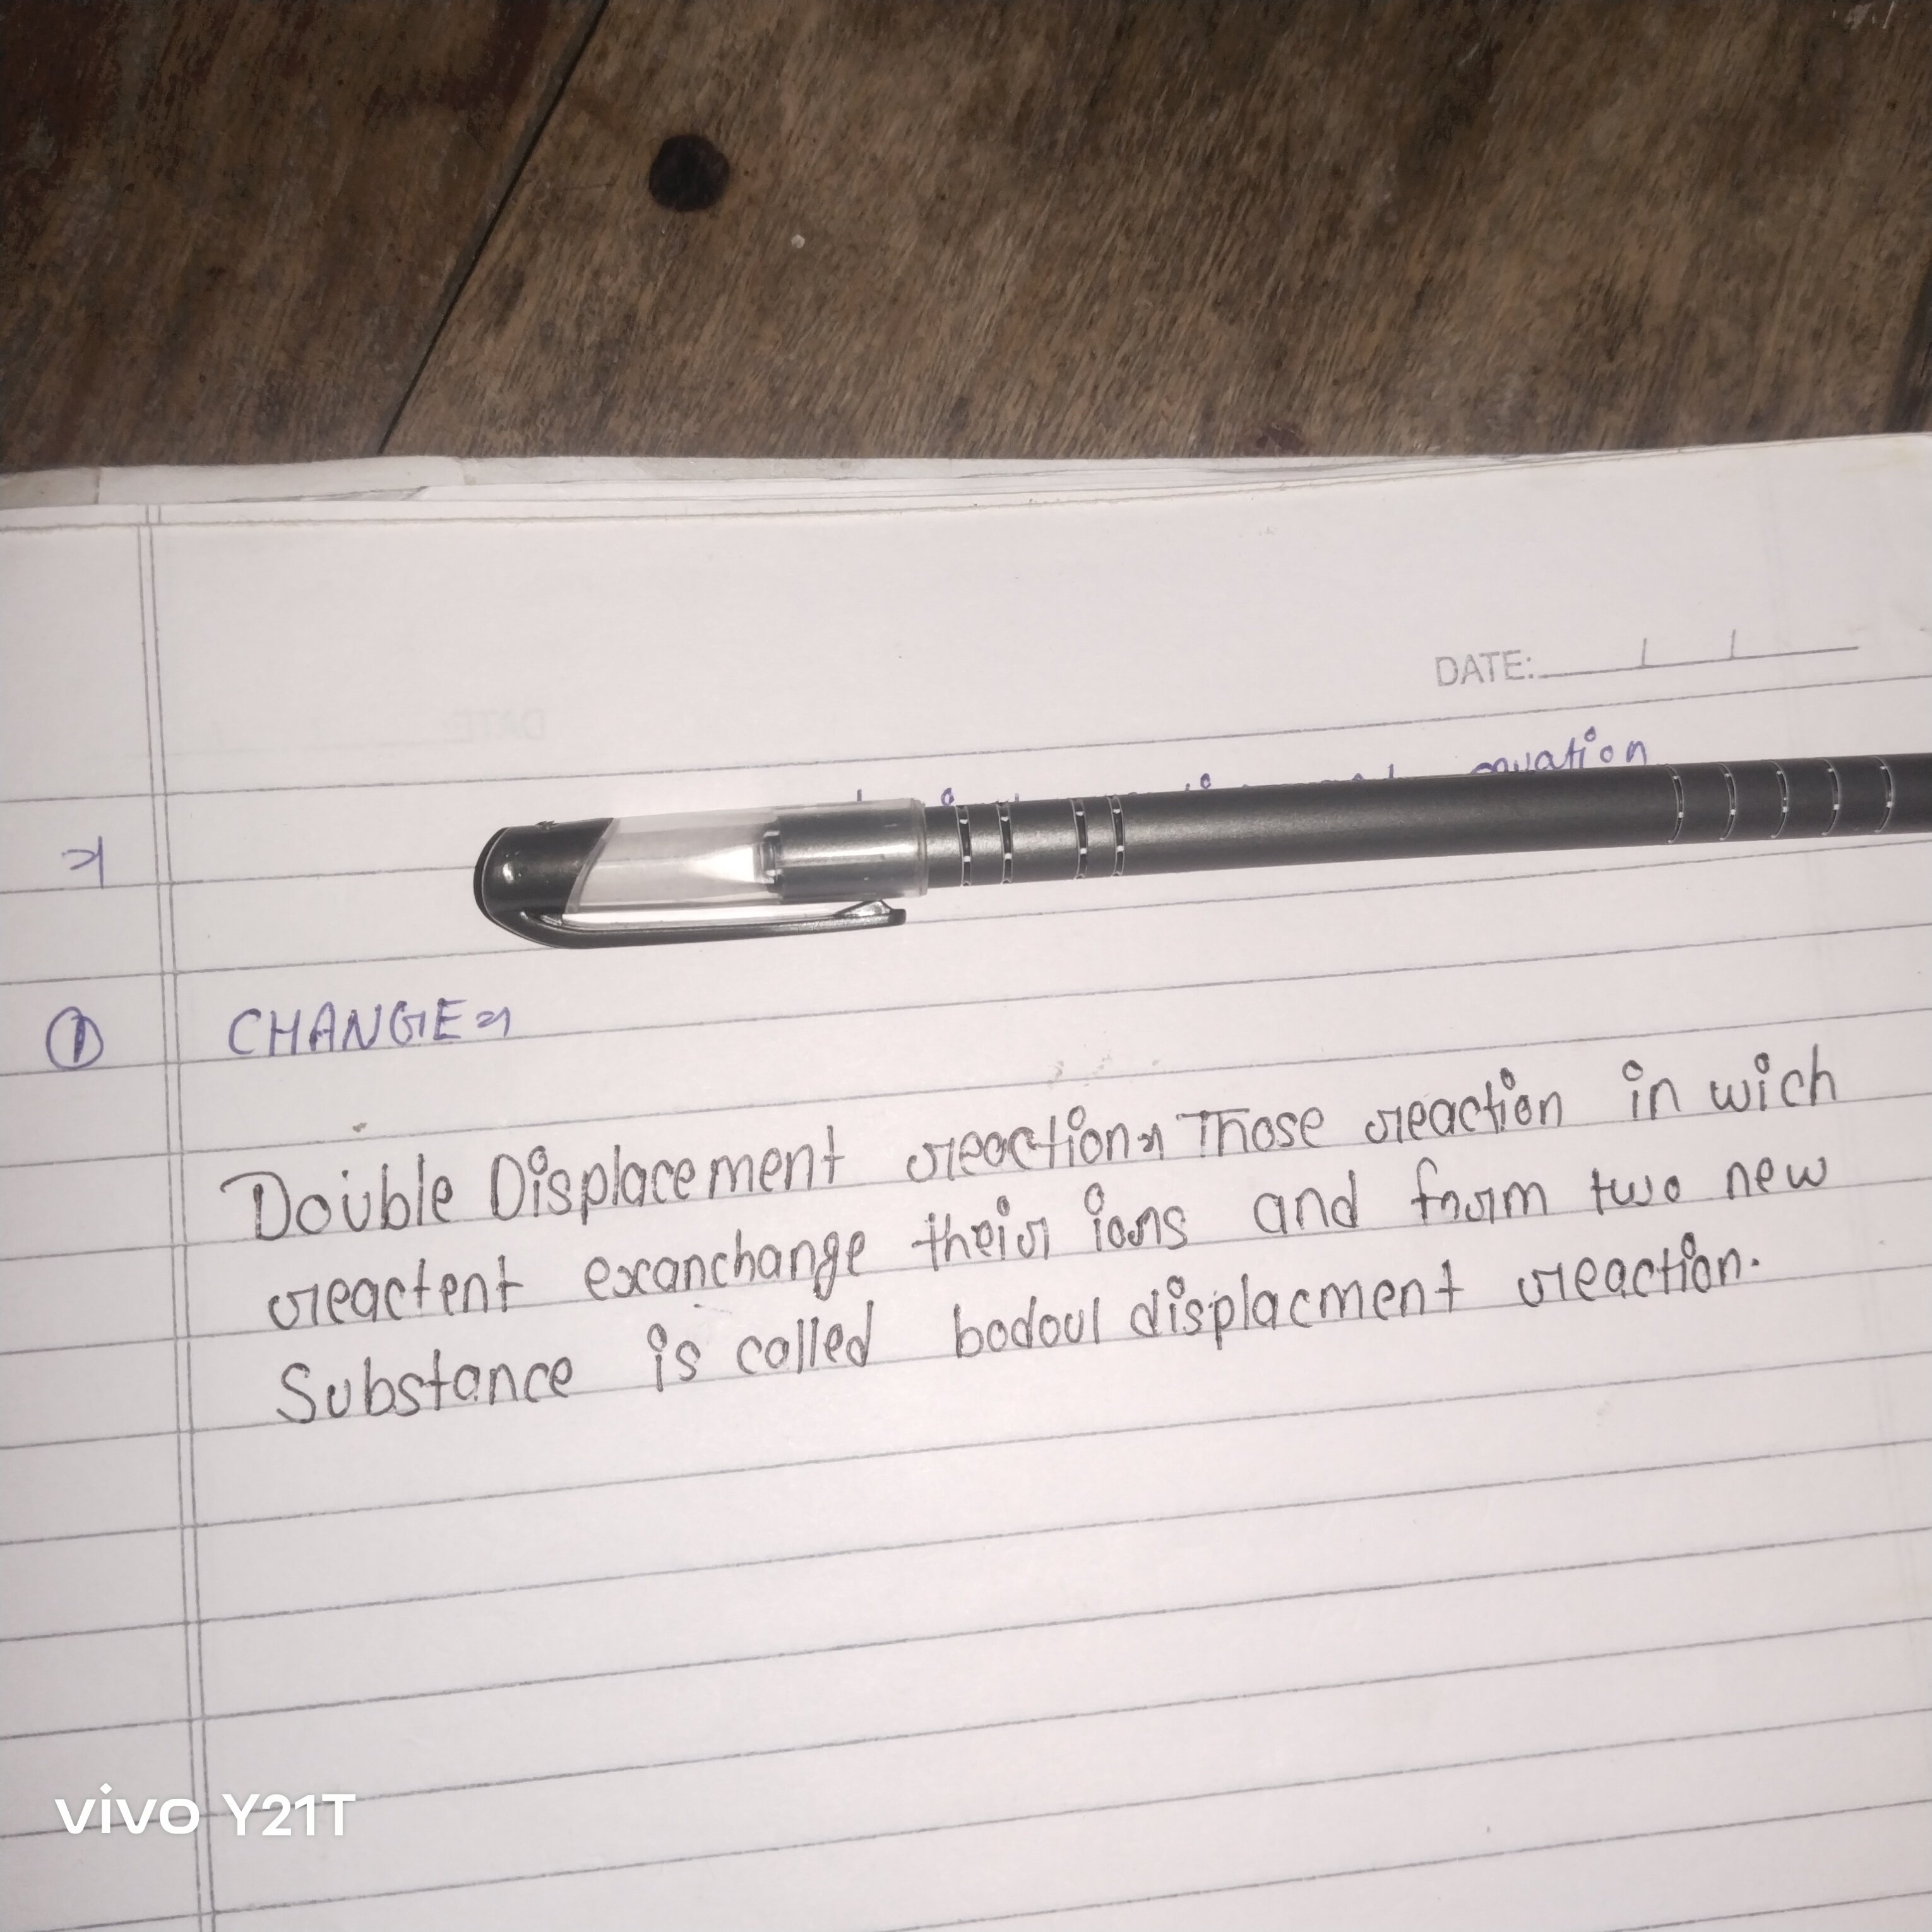 DATE:
equation
① CHANGE
Double Displacement reaction Those reaction in wich
reactent exanchange their ions and form two new
Substance is called bodoul displacment reaction.
vivo Y21T